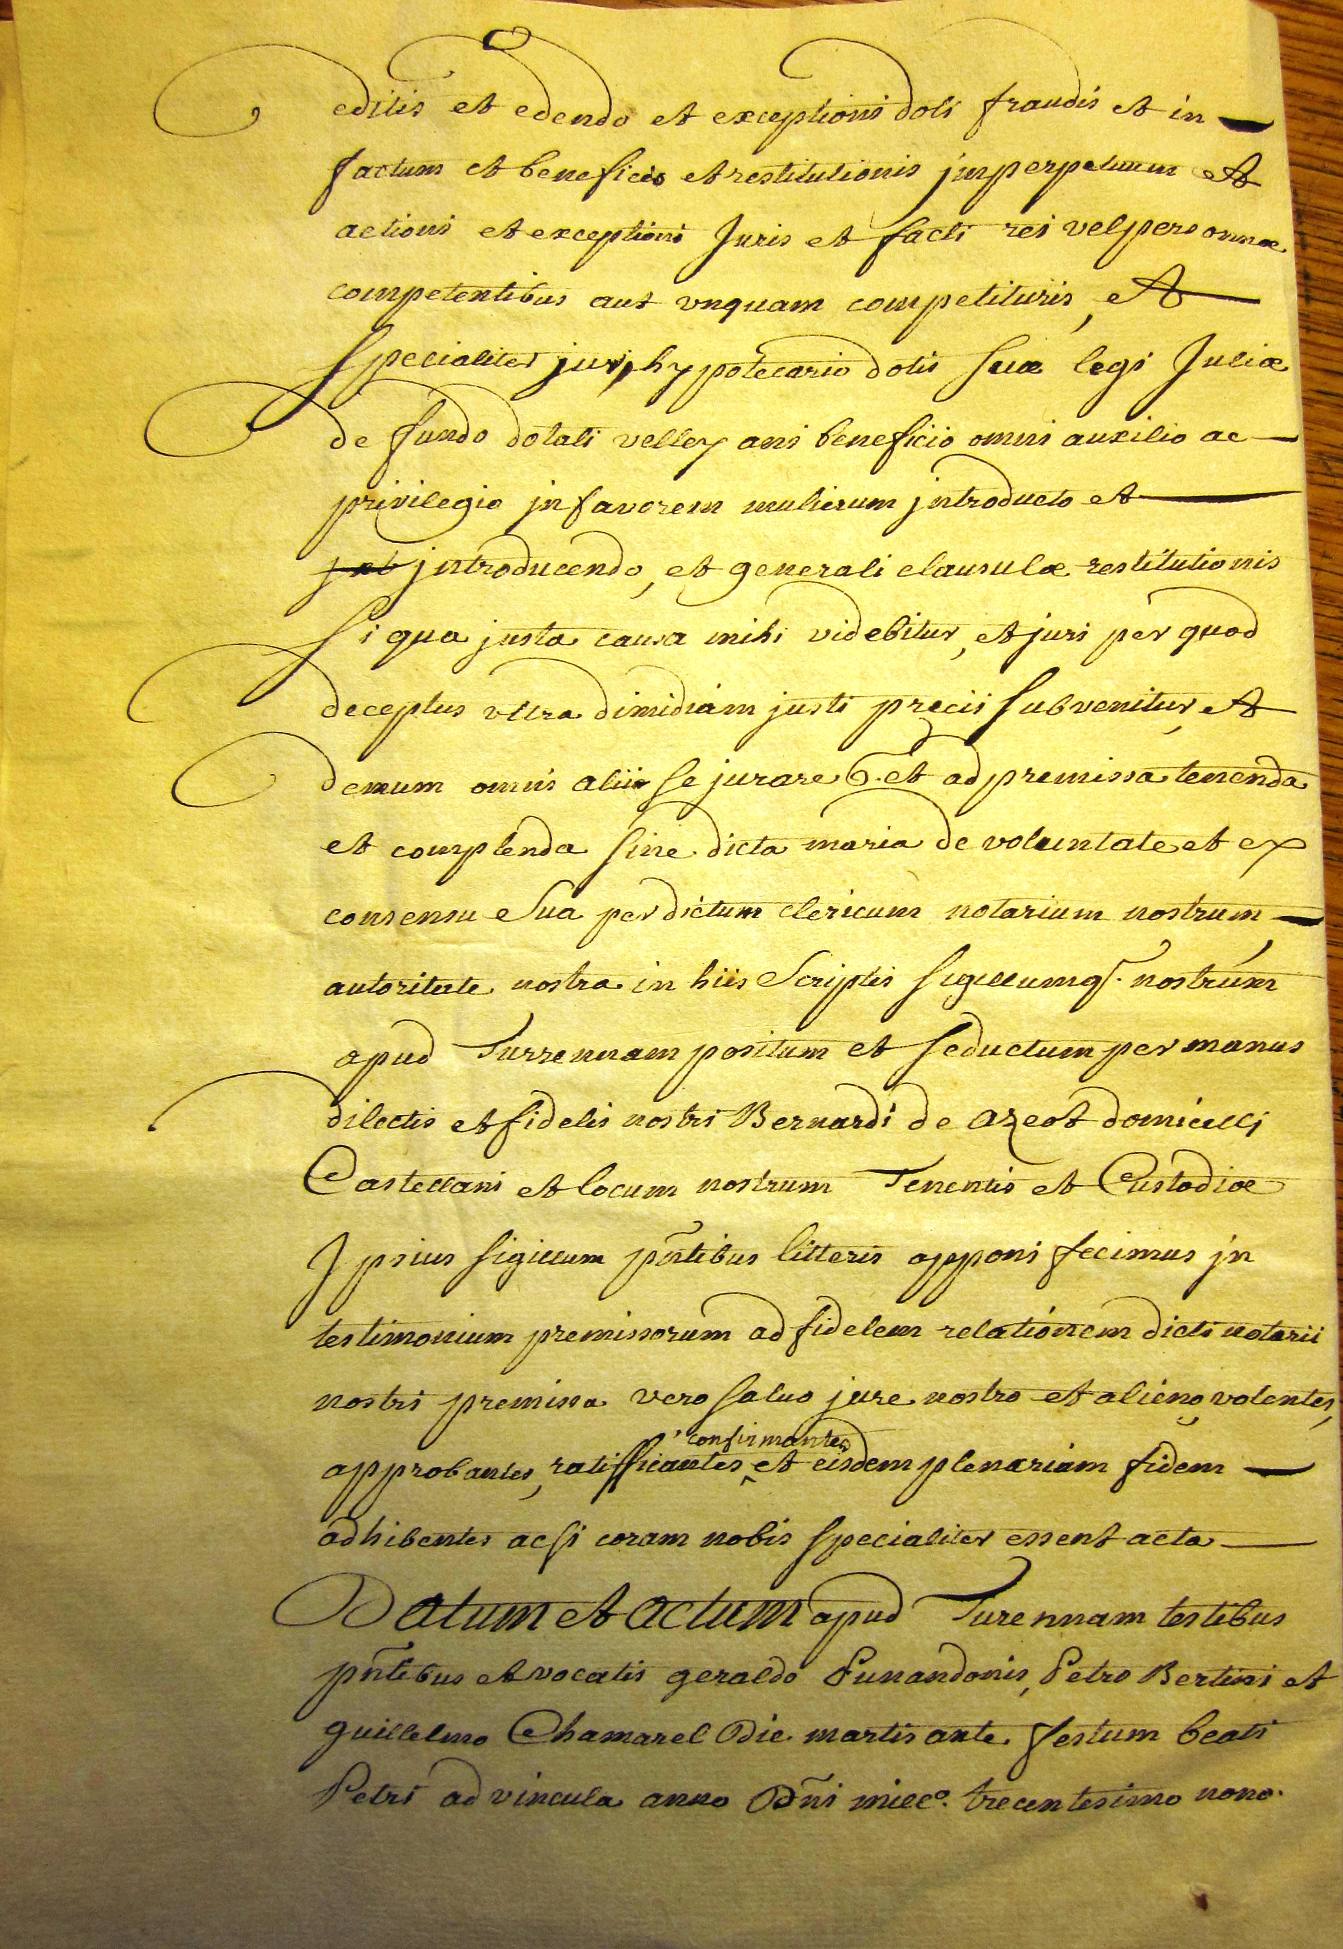 editis et edendo et exceptioni doli fraudis et in
factum et beneficio et restitutionis jnperpetuum et
actioni et exceptioni Juris et facti rei vel personnæ
competentibus aut vnquam competituris, et
specialiter juri hypotecario dotis suæ legi Juliæ
de fundo dotali velleyani beneficio omni auxilio ac
privilegio jn favorem mulierum jntroducto et
jntroducendo, et generali clausulæ restitutionis
si qua justa causa mihi videbitur, et juri per quod
deceptus vltra dimidiam justi precii subvenitur, et
demum omnis aliis se jurare et ad premissa tenenda
et complenda sine dicta maria de voluntate et ex
consensu sua per dictum clericum notarium nostrum
autoritate nostra in hiis scriptis sigillumq. nostrum
apud Turrennam positum et seductum per manus
dilectis et fidelis nostri Bernardi de azeot domicilli
Castellani et locum nostrum Tenentis et Custodiæ
Jpsius sigillum pñtibus litteris apponi fecimus jn
testimonium premissorum ad fidelem relationem dicti notarii
nostri premissa vero saluo jure nostro et alieno volentes,
approbantes, ratifficantes confirmantes et eisdem plenariam fidem
adhibentes acsi coram nobis specialiter essent acta
Datum et actum apud Turennam testibus
pñtibus et vocatis geraldo Punandonis, Petro Bertini et
guillelmo Chamarel Die martis ante festum beati
Petri ad vincula anno Dñi millº. trecentesimo nono.